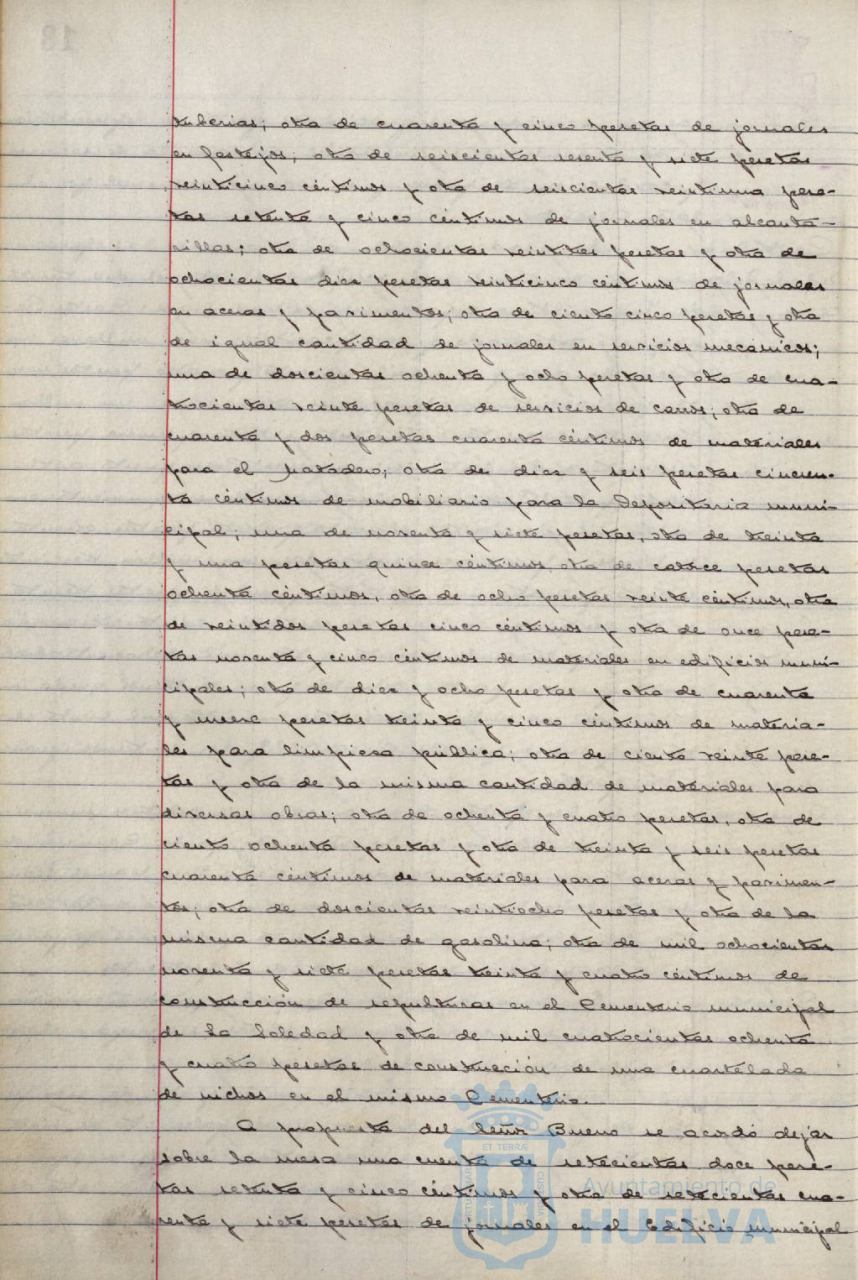 tuberias; otra de cuarenta y cinco pesetas de jornales
en festejos; otra de seiscientas sesenta y siete pesetas
veinticinco céntimos y otra de seiscientas veintiuna pese-
tas setenta y cinco céntimos de jornales en alcanta-
rillas; otra de ochocientas veintitres pesetas y otra de
ochocientas diez pesetas veinticinco céntimos de jornales
en aceras y pavimentos; otra de ciento cinco pesetas y otra
de igual cantidad de jornales en servicios mecanicos;
una de doscientas ochenta y ocho pesetas y otra de cua-
trocientas veinte pesetas de servicios de carros; otra de
cuarenta y dos pesetas cuarenta céntimos de materiales
para el Matadero; otra de diez y seis pesetas cincuen-
ta céntimos de mobiliario para la Depositaria muni-
cipal; una de noventa y siete pesetas, otra de treinta
y una pesetas quince céntimos, otra de catorce pesetas
ochenta céntimos, otra de ocho pesetas veinte céntimos, otra
de veintidos pesetas cinco céntimos y otra de once pese-
tas noventa y cinco céntimos de materiales en edificios muni-
cipales; otra de diez y ocho pesetas y otra de cuarenta
y nueve pesetas treinta y cinco céntimos de materia-
les para limpieza pública; otra de ciento veinte pese-
tas y otra de la misma cantidad de materiales para
diversas obras; otra de ochenta y cuatro pesetas, otra de
ciento ochenta pesetas y otra de treinta y seis pesetas
cuarenta céntimos de materiales para aceras y pavimen-
tos; otra de doscientas veintiocho pesetas y otra de la
misma cantidad de gasolina; otra de mil ochocientas
noventa y siete pesetas treinta y cuatro céntimos de
construcción de sepulturas en el Cementerio municipal
de la Soledad y otra de mil cuatrocientas ochenta
y cuatro pesetas de construcción de una cuartelada
de nichos en el mismo Cementerio.
A propuesta del Señor Bueno se acordó dejar
sobre la mesa una cuenta de setecientas doce pese-
tas setenta y cinco céntimos y otra de setecientas cua-
renta y siete pesetas de jornales en el Edificio municipal
Ayuntamiento de
HUELVA